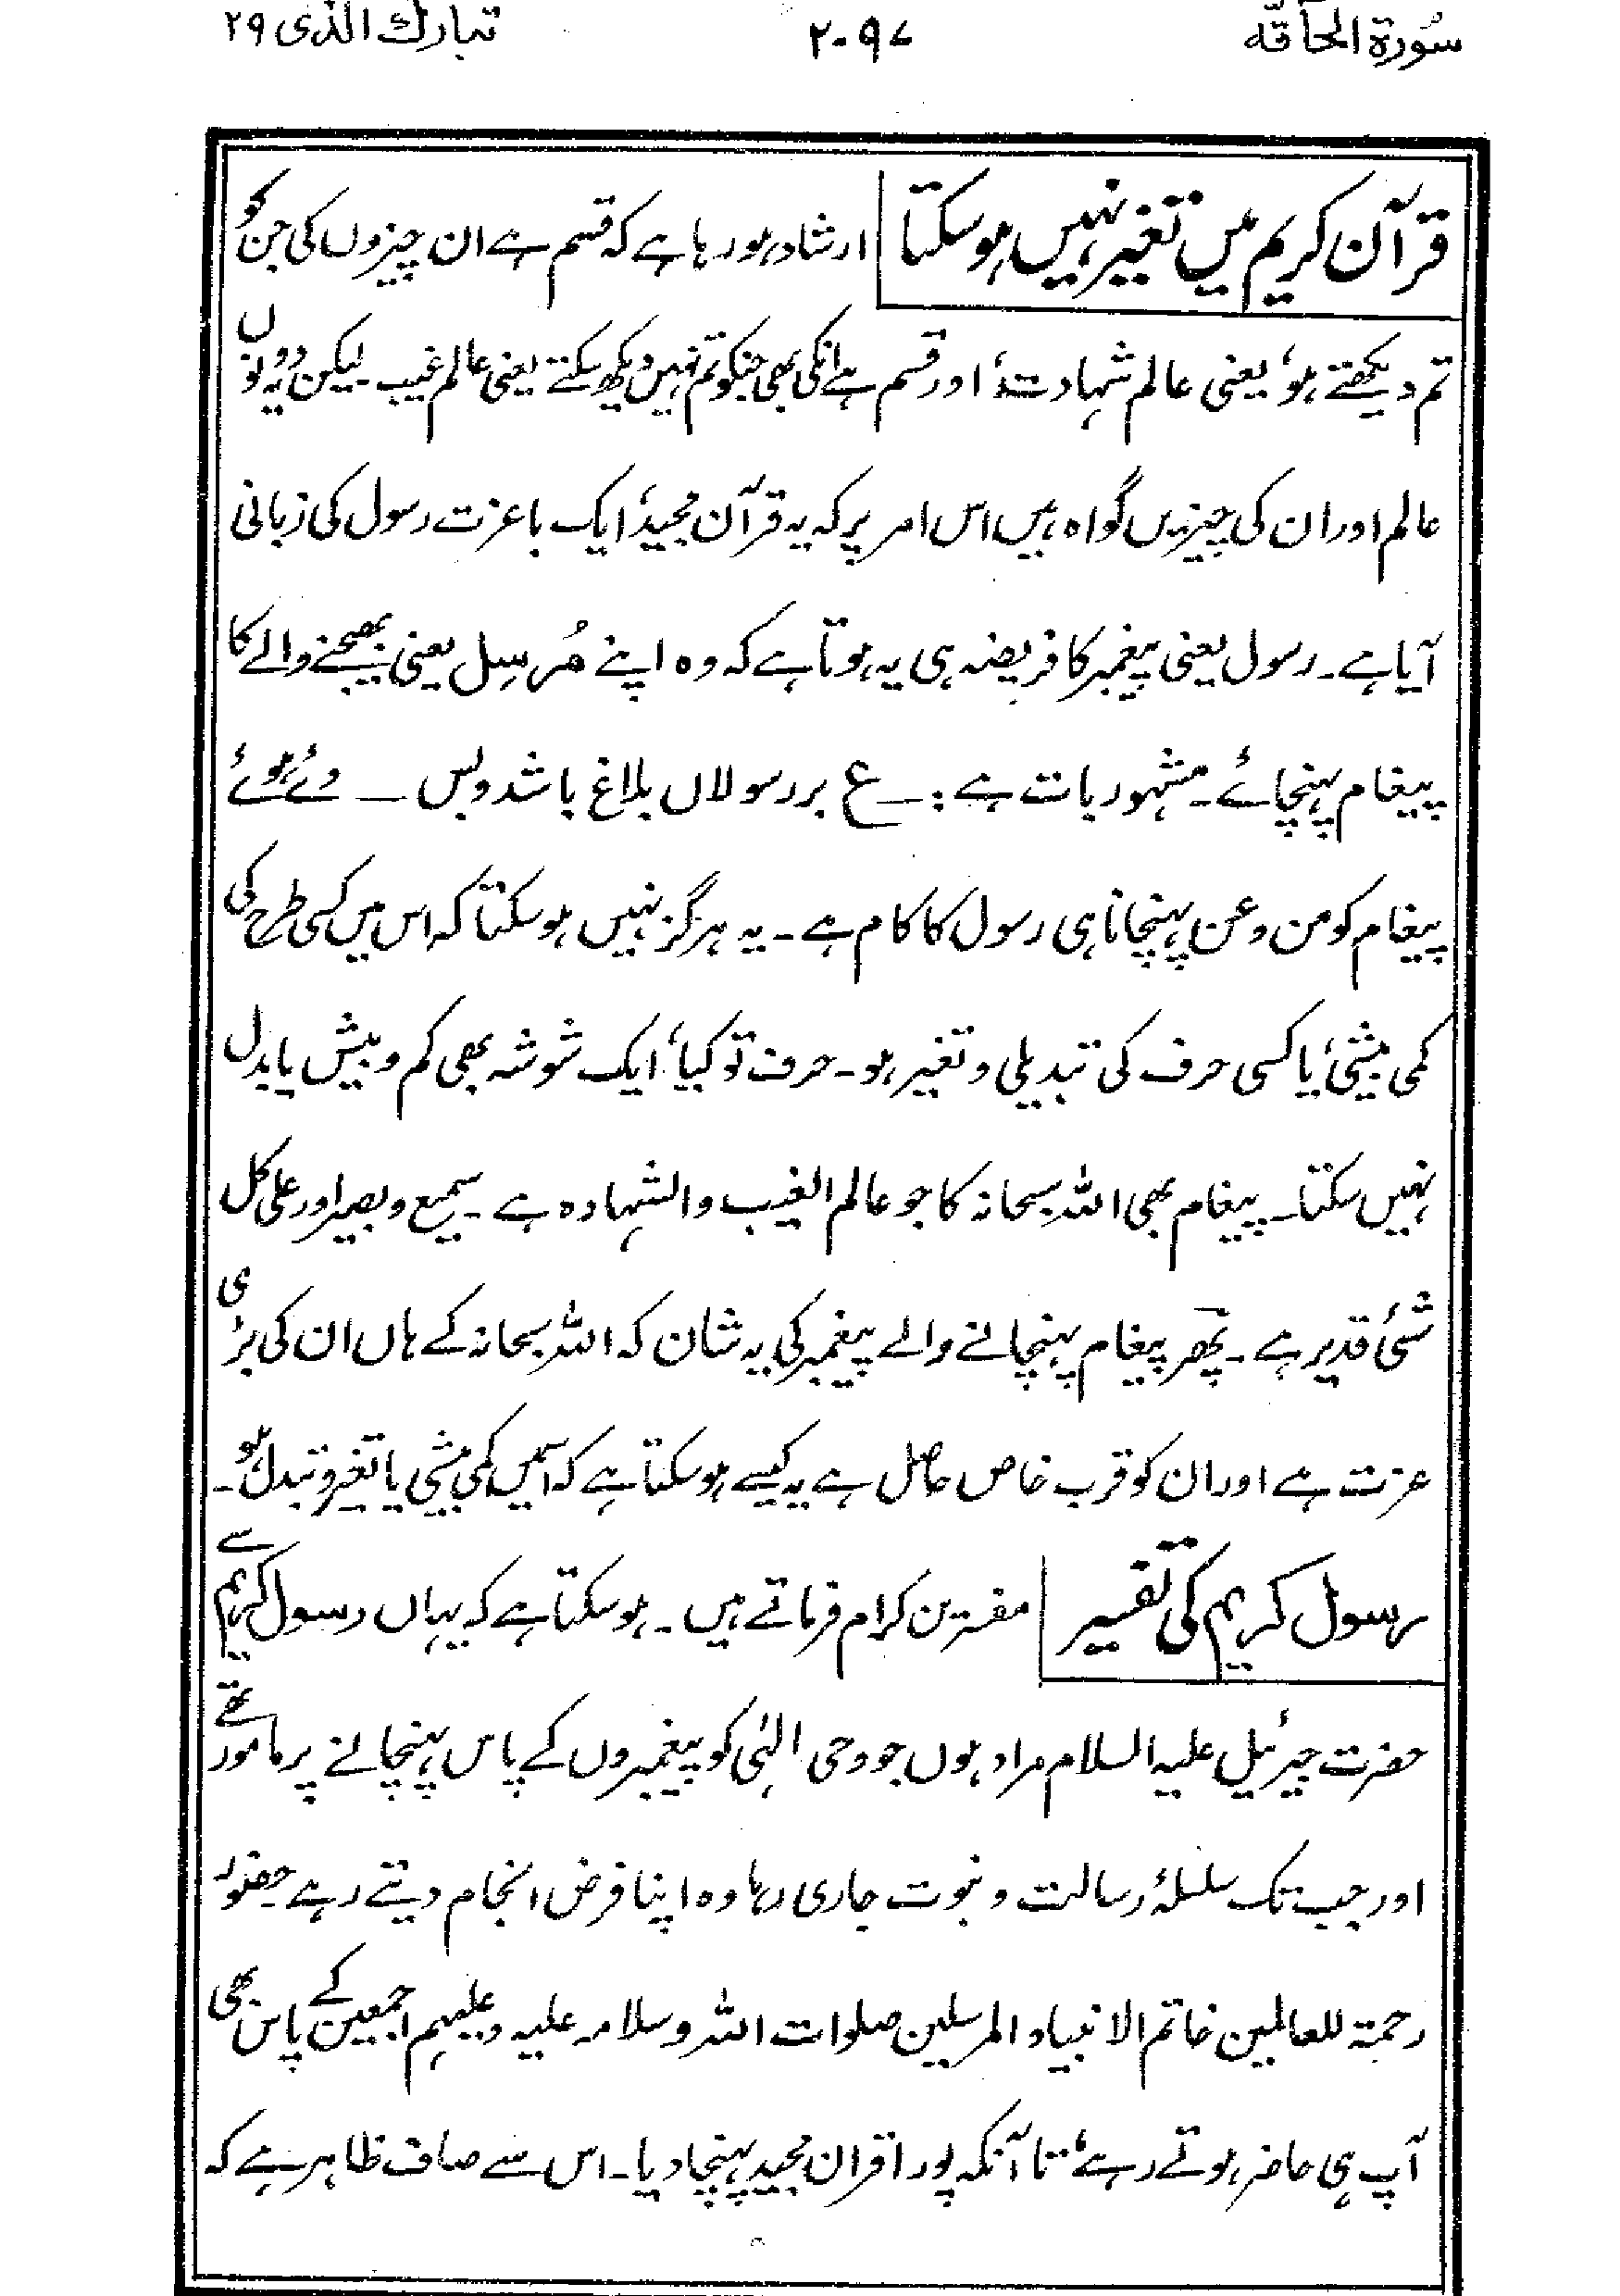 سُورۃ الحآقّہ ۲۰۹۷ تبارک الذی ۲۹
قرآن کریم میں تغیر نہیں ہو سکتا ارشاد ہو رہا ہے کہ قسم ہے ان چیزوں کی جن کو
تم دیکھتے ہو، یعنی عالم شہادت، اور قسم ہے انکی بھی جنکو تم نہیں دیکھ سکتے یعنی عالم غیب۔ لیکن یہ دونوں
عالم اور ان کی چیزیں گواہ ہیں اس امر پر کہ یہ قرآن مجید، ایک باعزت رسول کی زبانی
آیا ہے۔ رسول یعنی پیغمبر کا فریضہ ہی یہ ہوتا ہے کہ وہ اپنے مُرسِل یعنی بھیجنے والے کا
پیغام پہنچائے۔ مشہور بات ہے :۔ ع بر رسولاں بلاغ باشد و بس ۔ دئے ہوئے
پیغام کو من و عن پہنچانا ہی رسول کا کام ہے۔ یہ ہرگز نہیں ہو سکتا کہ اس میں کسی طرح کی
کمی بیشی، یا کسی حرف کی تبدیلی و تغیر ہو۔ حرف تو کیا، ایک شوشہ بھی کم و بیش یا بدل
نہیں سکتا۔ پیغام بھی اللہ سبحانہ کا جو عالم الغیب والشہادہ ہے۔ سمیع و بصیر اور علی کل
شئ قدیر ہے۔ پھر پیغام پہنچانے والے پیغمبر کی یہ شان کہ اللہ سبحانہ کے ہاں ان کی بڑی
عزت ہے اور ان کو قرب خاص حاصل ہے یہ کیسے ہو سکتا ہے کہ اسمیں کمی بیشی یا تغیر و تبدل ہو۔
رسول کریم کی تفسیر مفسّرین کرام فرماتے ہیں۔ ہو سکتا ہے کہ یہاں رسول کریم سے
حضرت جبرئیل علیہ السلام مراد ہوں جو وحی الٰہی کو پیغمبروں کے پاس پہنچانے پر مامور تھے
اور جب تک سلسلۂ رسالت و نبوت جاری رہا وہ اپنا فرض انجام دیتے رہے۔ حضور
رحمۃ للعالمین خاتم الانبیاء و المرسلین صلوات اللہ و سلامہ علیہ و علیہم اجمعین کے پاس بھی
آپ ہی حاضر ہوتے رہے، تا آنکہ پورا قرآن مجید پہنچا دیا۔ اس سے صاف ظاہر ہے کہ